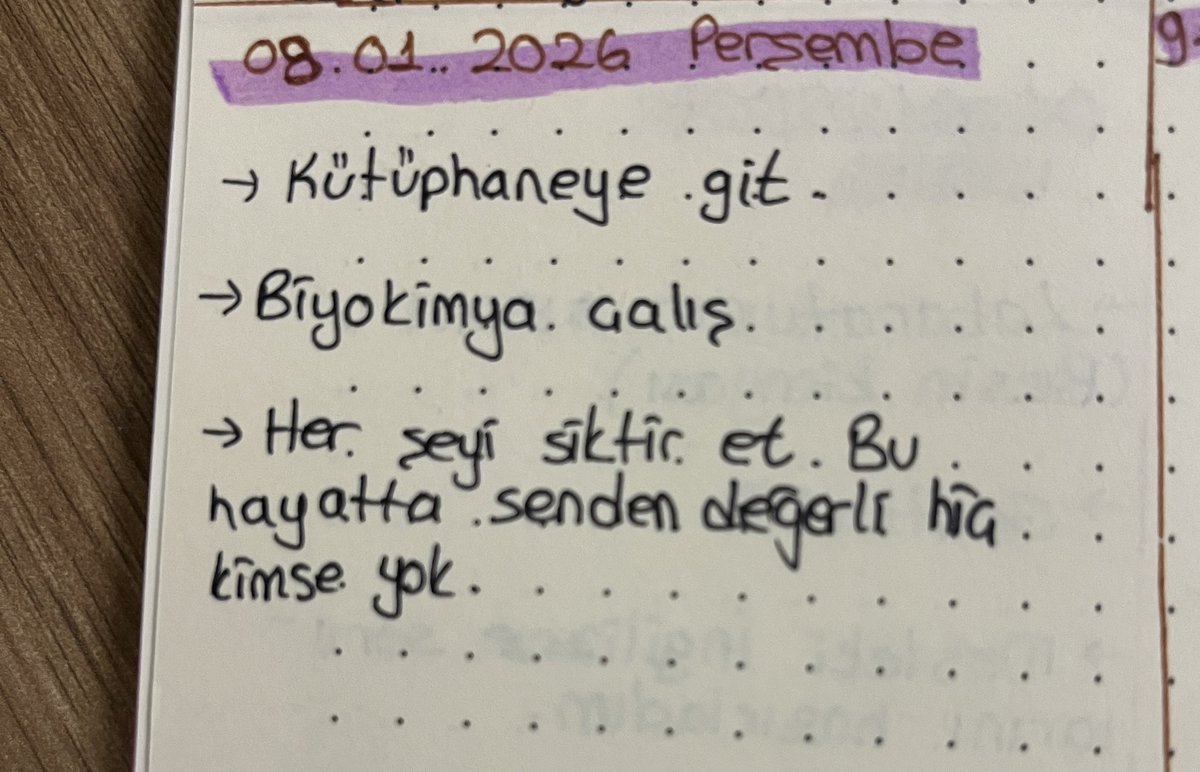 08.01.2026 Perşembe
→ Kütüphaneye git.
→ Biyokimya çalış.
→ Her şeyi siktir et. Bu
hayatta senden değerli hiç
kimse yok.